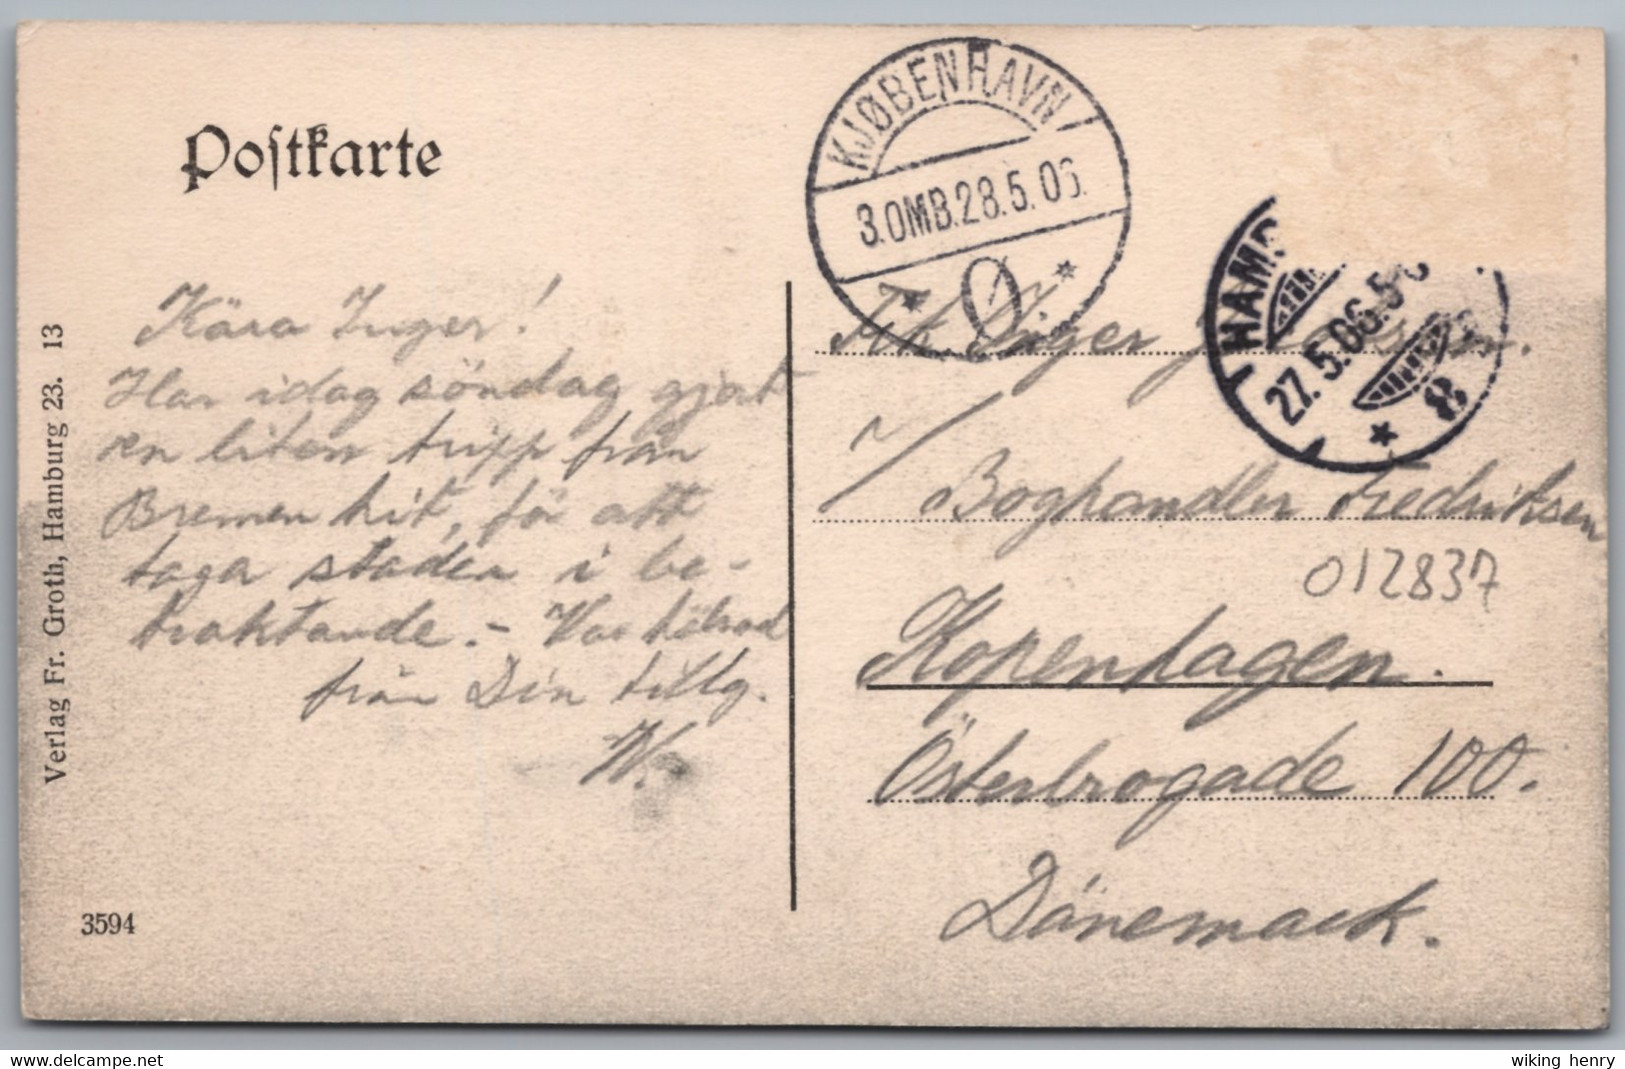 Postkarte
KJØBENHAVN
3.OMB.28.5.06.
Ø
HAMB
27.5.06.5-6
8
Kära Inger!
Har idag söndag gjort
en liten tripp från
Bremen hit, för att
taga staden i be-
traktande. – Var hälsad
från Din tillg.
W.
Frk. Inger
Boghandler Fredriksen
012837
Kopenhagen.
Österbrogade 100.
Dänemark.
Verlag Fr. Groth, Hamburg 23. 13
3594
delcampe.net
wiking henry